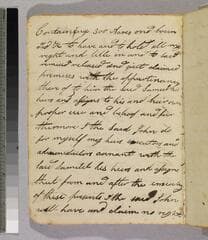 Containing 300 Acres and being
to have and to hold all my
right and title in and to said
premises with the appurtenances
thereof to him the said Samuel his
heirs and assigns to his and their own
proper use and behoof and for
the said John do
for myself my heirs executors and
administrators covenant with the
said his heirs and assigns
that from and after the ensealing
of these presents the said John
will have and claim no right